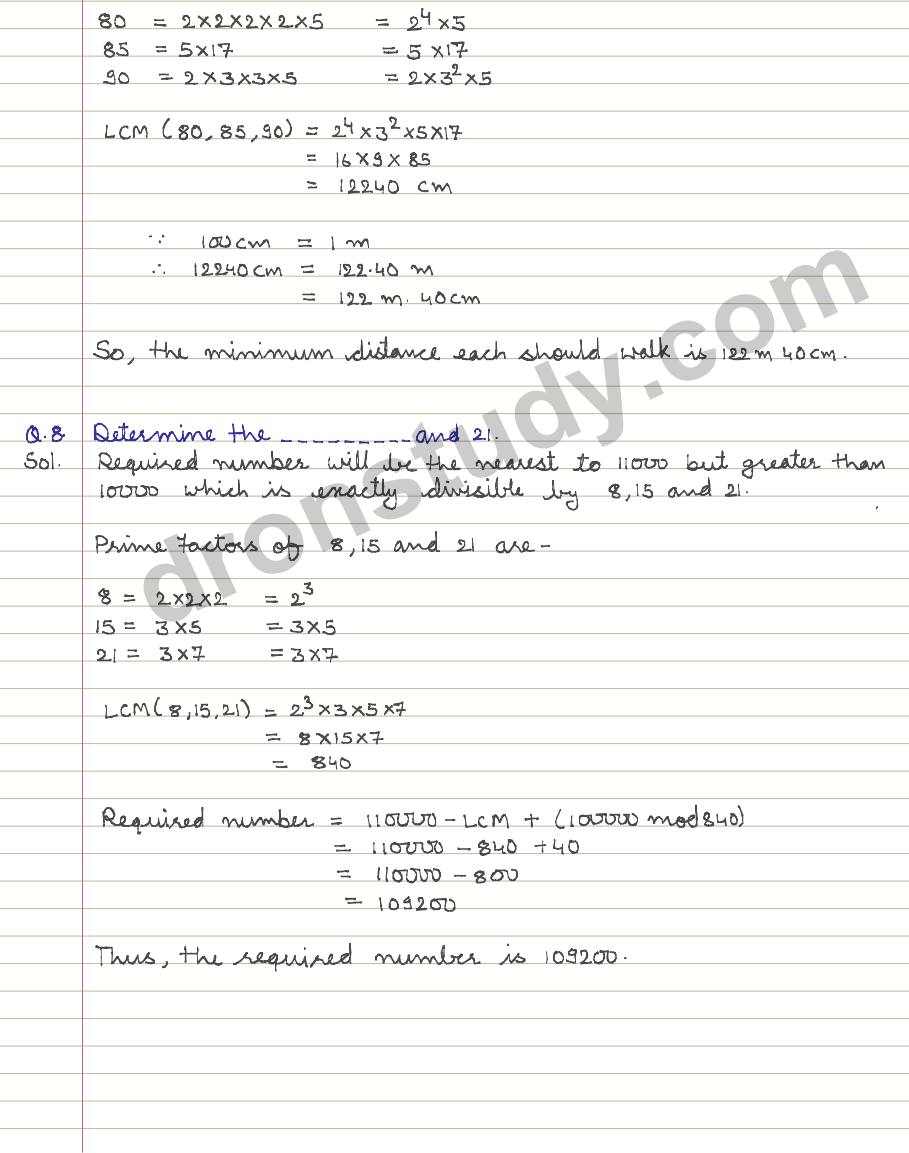 80 = 2×2×2×2×5 = 2⁴×5
85 = 5×17 = 5×17
90 = 2×3×3×5 = 2×3²×5
LCM (80, 85, 90) = 2⁴×3²×5×17
= 16×9×85
= 12240 cm
∵ 100cm = 1 m
∴ 12240cm = 122.40 m
= 122 m. 40cm
So, the minimum distance each should walk is 122 m 40 cm.
Q.8 Determine the _________ and 21.
Sol. Required number will be the nearest to 11000 but greater than
10000 which is exactly divisible by 8, 15 and 21.
Prime Factors of 8, 15 and 21 are -
8 = 2×2×2 = 2³
15 = 3×5 = 3×5
21 = 3×7 = 3×7
LCM(8,15,21) = 2³×3×5×7
= 8×15×7
= 840
Required number = 110000 - LCM + (100000 mod 840)
= 110000 - 840 + 40
= 110000 - 800
= 109200
Thus, the required number is 109200.
dronstudy.com